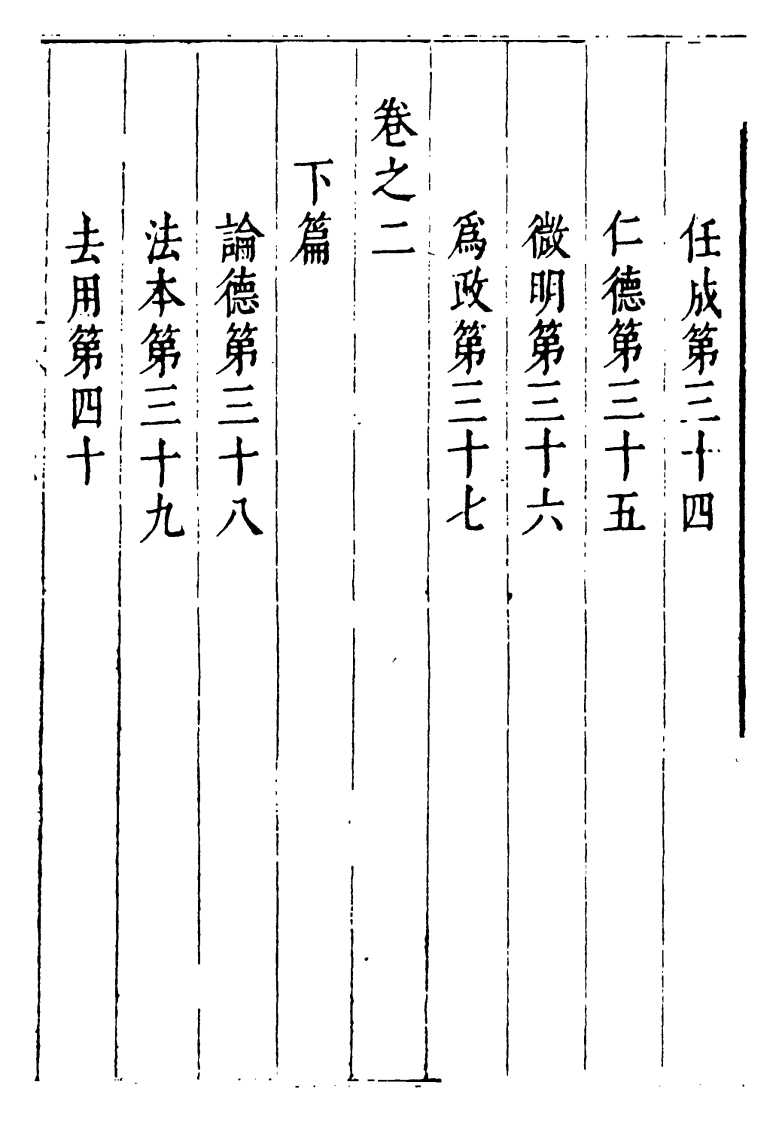 任成第三十四
仁德第三十五
微明第三十六
爲政第三十七
卷之二
下篇
論德第三十八
法本第三十九
去用第四十